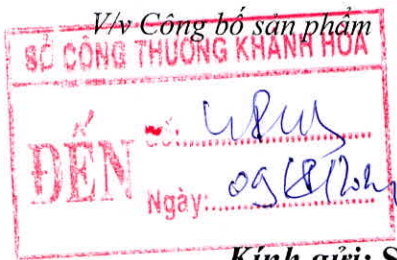 V/v Công bố sản phẩm
SỞ CÔNG THƯƠNG KHÁNH HÒA
ĐẾN
Số:
Ngày: 09/8/
Kính gửi: S